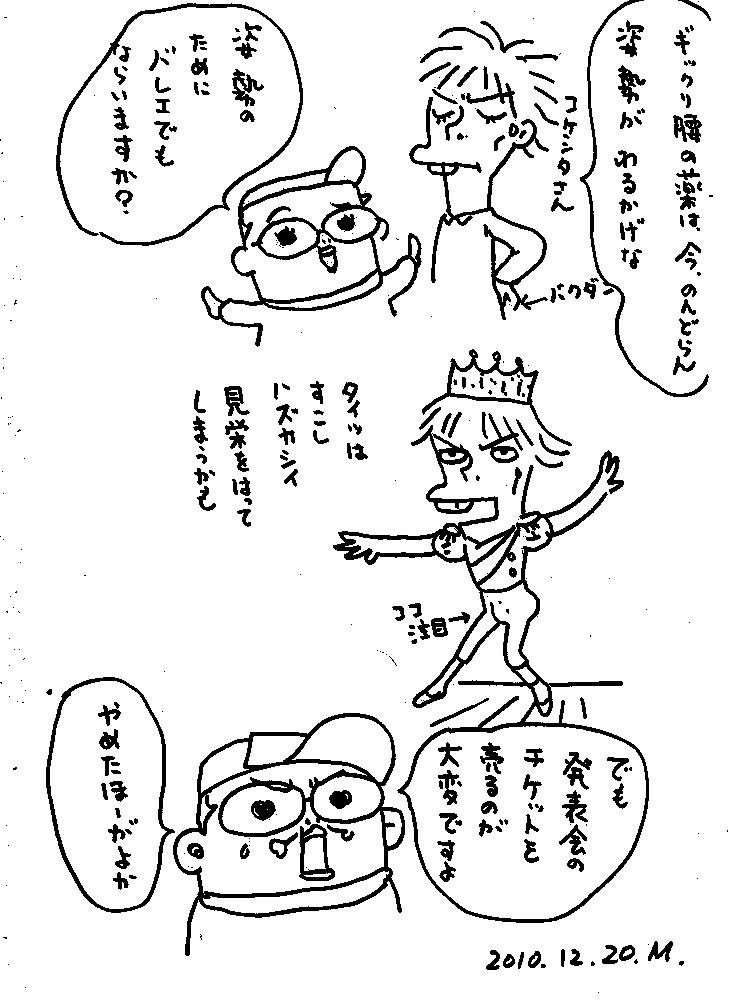 ギックリ腰の薬は、今、のんどらん
姿勢が わるかげな
コケシタさん
バクダン
姿勢の
ために
バレエでも
ならいますか?
タイツは
すこし
ハズカシイ
見栄をはって
しまうかも
ココ
注目
でも
発表会の
チケットを
売るのが
大ホタですよ
やめたほーがよか
2010.12.20.M.